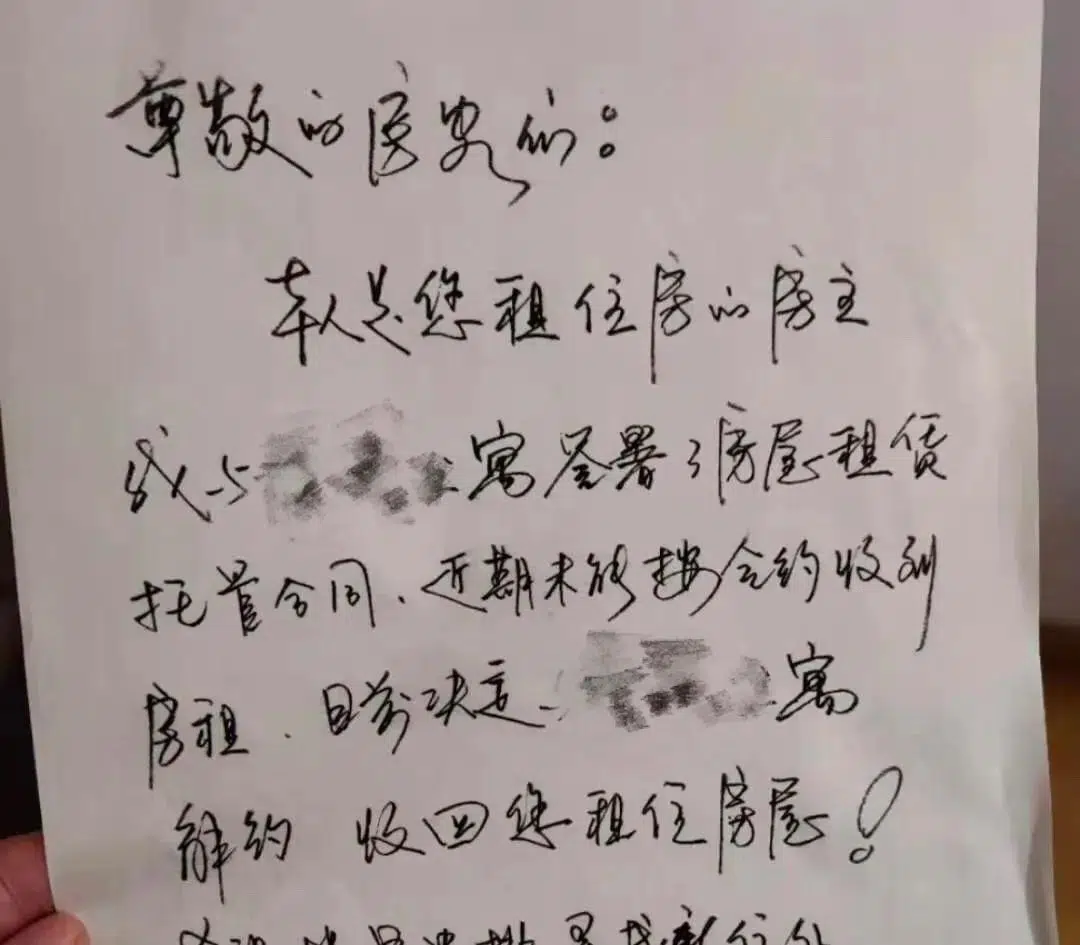 尊敬的房客们：
本人是您租住房的房主
我与寓签署了房屋租赁
托管合同、近期未能按合约收到
房租、目前决定寓
解约 收回您租住房屋！